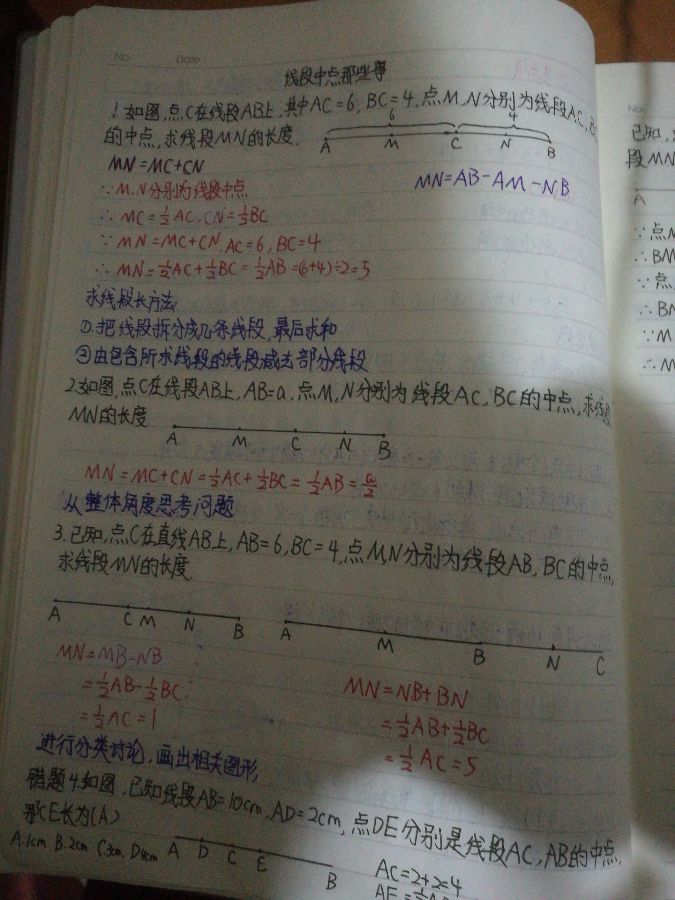 No.
Date
线段中点那些事
1.如图,点C在线段AB上,其中AC=6,BC=4,点M,N分别为线段AC,B
的中点,求线段MN的长度.
6
4
A M C N B
MN=MC+CN
MN=AB-AM-NB
∵M,N分别为线段中点
∴MC=½AC,CN=½BC
∵MN=MC+CN,AC=6,BC=4
∴MN=½AC+½BC=½AB=(6+4)÷2=5
求线段长方法
①.把线段拆分成几条线段,最后求和
②由包含所求线段的线段减去部分线段
2.如图,点C在线段AB上,AB=a,点M,N分别为线段AC,BC的中点,求线段
MN的长度
A M C N B
MN=MC+CN=½AC+½BC=½AB=a/2
从整体角度思考问题
3.已知,点C在直线AB上,AB=6,BC=4,点M,N分别为线段AB,BC的中点,
求线段MN的长度
A C M N B
A M B N C
MN=MB-NB
=½AB-½BC
=½AC=1
MN=NB+BN
=½AB+½BC
=½AC=5
进行分类讨论,画出相关图形
错题4.如图,已知线段AB=10cm,AD=2cm,点DE分别是线段AC,AB的中点,
那CE长为(A)
A.1cm B.2cm C.3cm D.4cm
A D C E B
AC=2+2=4
No.
已知,
段MN
A
∵点M
∴BM
∵点
∴BN
∵M
∴M